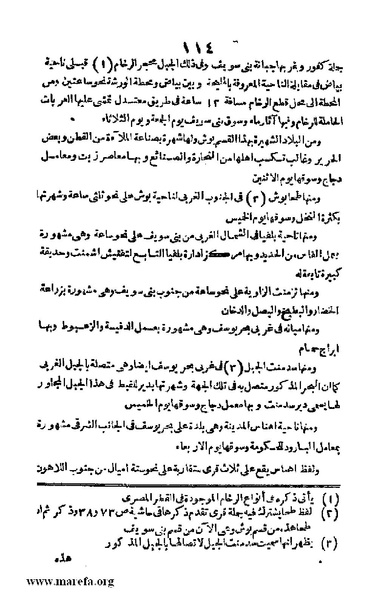 ١١٤
جملة كفور وبقربها جبانة بنى سويف وفى ذلك الجبل محجر الرخام (١) قبلى ناحية
بياض فى مقابلة الناحية المعروفة بالمليحة وبين بياض ومحطة الورشة نحو ساعتين ومن
المحطة الى محل قطع الرخام مسافة ١٣ ساعة فى طريق معتدل تمشى عليها العربات
الحاملة للرخام وبها آثار مياه وسوق بنى سويف يوم الجمعة ويوم الثلاثاء
ومن البلاد الشهيرة بهذا القسم بوش ولها شهرة بصناعة الملاءة من القطن وبعض
الحرير وغالب تكسب اهلها من التجارة والصنائع وبها معاصر زيت ومعامل
دجاج وسوقها يوم الاثنين
ومنها طما بوش (٢) فى الجنوب الغربى لناحية بوش على نحو ثلثى ساعة وشهرتها
بكثرة النخل وسوقها يوم الخميس
ومنها ناحية بلفيا فى الشمال الغربى من بنى سويف على نحو ساعة وهى مشهورة
بعمل الفاس من الحديد وبها مركز ادارة بلفيا التابع لتفتيش اشمنت وحديقة
كبيرة تابعة له
ومنها تزمنت الزاوية على نحو ساعة من جنوب بنى سويف وهى مشهورة بزراعة
الخضار والبطيخ والبصل والدخان
ومنها ميانه فى غربى بحر يوسف وهى مشهورة بعمل الدفية والزعبوط وبها
ابراج حمام
ومنها سدمنت الجبل (٣) فى غربى بحر يوسف ايضا وهى متصلة بالجبل الغربى
كما ان البحر المذكور متصل به فى تلك الجهة وشهرتها بدير للقبط فى هذا الجبل المجاور
لها يسمى دير سدمنت وبها معمل دجاج وسوقها يوم الخميس
ومنها ناحية اهناس المدينة وهى بلدة على بحر يوسف فى الجانب الشرقى مشهورة
بمعامل البارود للحكومة وسوقها يوم الاربعاء
ولفظ اهناس يقع على ثلاث قرى متقاربة على نحو ستة اميال من جنوب اللاهون
(١) يأتى ذكره فى أنواع الرخام الموجودة فى القطر المصرى
(٢) لفظ طما يشترك فيه جملة قرى تقدم ذكرها فى حاشية ص ٧٣ و٣٨ وذكر ثم ان
طما هذه من قسم بوش وهى الآن من قسم بنى سويف
(٣) يظهر انها سميت سدمنت الجبل لاتصالها بالجبل المذكور
هذه
www.marefa.org